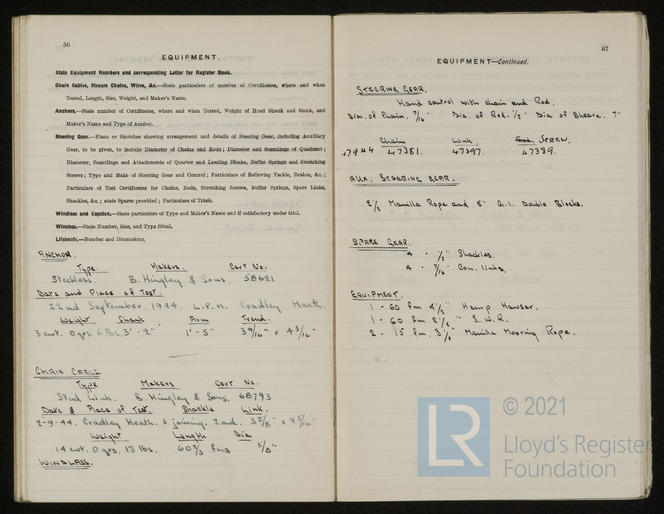 56
EQUIPMENT.
State Equipment Numbers and corresponding Letter for Register Book.
Chain Cables, Stream Chains, Wires, &c.—State particulars of number of Certificates, where and when
Tested, Length, Size, Weight, and Maker's Name.
Anchors.—State number of Certificates, where and when Tested, Weight of Head Shank and Stock, and
Maker's Name and Type of Anchor.
Steering Gear.—Plans or Sketches showing arrangement and details of Steering Gear, including Auxiliary
Gear, to be given, to include Diameter of Chains and Rods; Diameter and Scantlings of Quadrant;
Diameter, Scantlings and Attachments of Quarter and Leading Blocks, Buffer Springs and Stretching
Screws; Type and Make of Steering Gear and Control; Particulars of Relieving Tackle, Brakes, &c.;
Particulars of Test Certificates for Chains, Rods, Stretching Screws, Buffer Springs, Spare Links,
Shackles, &c.; state Spares provided; Particulars of Trials.
Windlass and Capstan.—State particulars of Type and Maker's Name and if satisfactory under trial.
Winches.—State Number, Size, and Type fitted.
Liftboats.—Number and Dimensions.
ANCHOR.
Type. Makers. Cert No.
Stockless. B. Hingley & Sons 58621
Date and Place of Test.
22nd September 1944. L.P.H. Cradley Heath.
Weight Shank Arm Trend.
3 cwt. 0 qrs. 6 lbs. 3'-2" 1'-5" 3 9/16" x 4 5/16"
CHAIN CABLE
Type Makers Cert No.
Stud Link. B. Hingley & Sons. 68793
Date & Place of Test. Shackle Link.
2-9-44. Cradley Heath. 3 joining. 2 end. 3 5/8" x
Weight Length Dia
14 cwt. 0 qrs. 13 lbs. 60 2/3 fms 5/8"
WINDLASS.
57
EQUIPMENT—Continued.
STEERING GEAR.
Hand control with chain and Rod.
Dia. of Chain. 7/16" Dia. of Rod. 1/2" Dia of Sheave. 7"
Chain Link. Screw.
47944 47381. 47397. 47389.
AUX. STEERING GEAR.
2 1/2 Manilla Rope and 5" G.I. Double Blocks.
SPARE GEAR.
4 - 1/2" Shackles.
4 - 7/16" Con. links.
EQUIPMENT.
1 - 60 fm 4 1/2" Hemp Hawser.
1 - 60 fm 2 1/2" S.W.R.
2 - 15 fm. Manilla Mooring Rope.
LR
© 2021
Lloyd's Register
Foundation